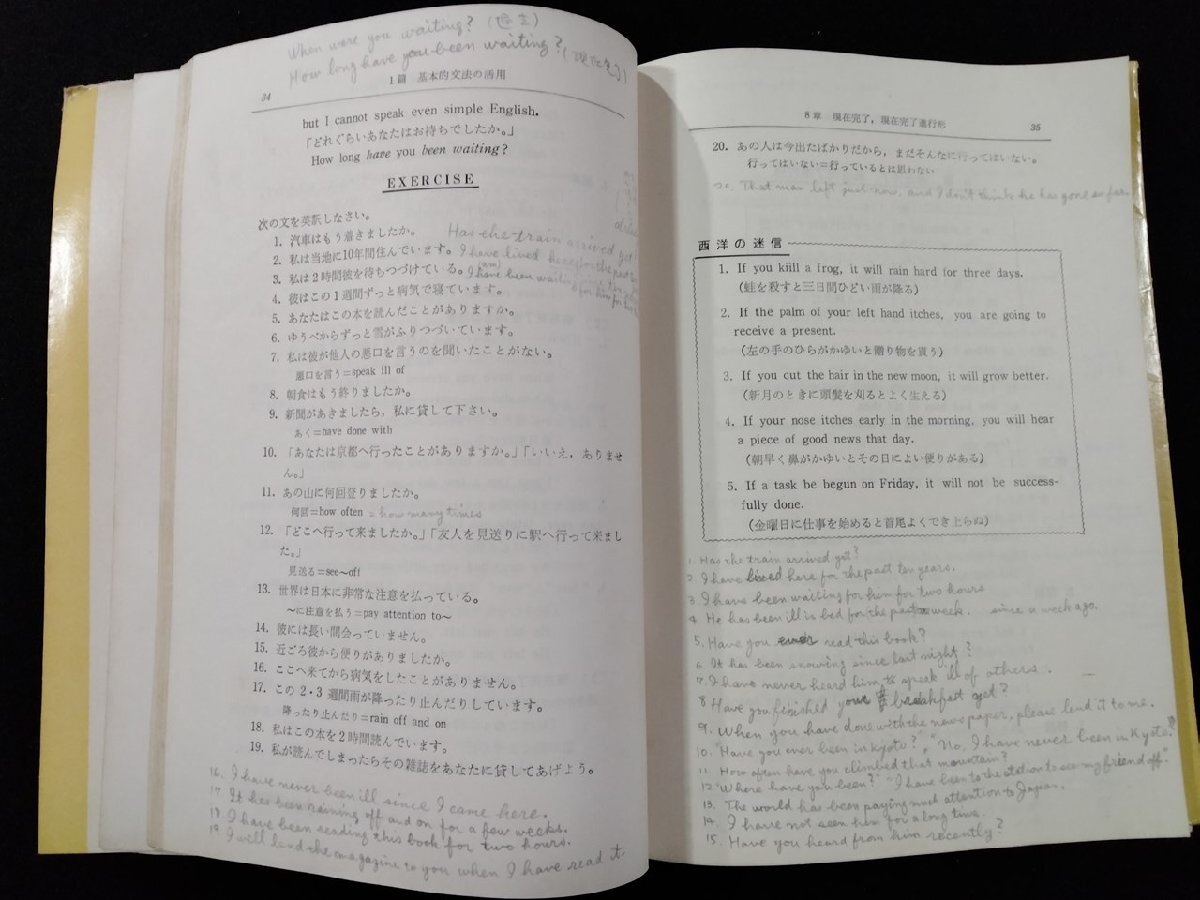 When were you waiting? (過去)
How long have you been waiting? (現在完了)
34
1篇 基本的文法の活用
but I cannot speak even simple English.
「どれぐらいあなたはお待ちでしたか。」
How long have you been waiting?
EXERCISE
次の文を英訳しなさい。
1. 汽車はもう着きましたか。
Has the train arrived yet?
2. 私は当地に10年間住んでいます。
I have lived here for the past
3. 私は2時間彼を待ちつづけている。
I have been waiting
for him for
4. 彼はこの1週間ずっと病気で寝ています。
5. あなたはこの本を読んだことがありますか。
6. ゆうべからずっと雪がふりつづいています。
7. 私は彼が他人の悪口を言うのを聞いたことがない。
悪口を言う=speak ill of
8. 朝食はもう終りましたか。
9. 新聞があきましたら、私に貸して下さい。
あく=have done with
10. 「あなたは京都へ行ったことがありますか。」「いいえ，ありませ
ん。」
11. あの山に何回登りましたか。
何回=how often = how many times
12. 「どこへ行って来ましたか。」「友人を見送りに駅へ行って来まし
た。」
見送る=see～off
13. 世界は日本に非常な注意を払っている。
～に注意を払う=pay attention to～
14. 彼には長い間会っていません。
15. 近ごろ彼から便りがありましたか。
16. ここへ来てから病気をしたことがありません。
17. この2・3週間雨が降ったり止んだりしています。
降ったり止んだり=rain off and on
18. 私はこの本を2時間読んでいます。
19. 私が読んでしまったらその雑誌をあなたに貸してあげよう。
16. I have never been ill since I came here.
17. It has been raining off and on for a few weeks.
18. I have been reading this book for two hours.
19. I will lend the magazine to you when I have read it.
8章 現在完了，現在完了進行形
35
20. あの人は今出たばかりだから，まだそんなに行ってはいない。
行ってはいない=行っているとは思わない
20. That man left just now, and I don't think he has gone so far.
西洋の迷信
1. If you kiill a frog, it will rain hard for three days.
(蛙を殺すと三日間ひどい雨が降る)
2. If the palm of your left hand itches, you are going to
receive a present.
(左の手のひらがかゆいと贈り物を貰う)
3. If you cut the hair in the new moon, it will grow better.
(新月のときに頭髪を刈るとよく生える)
4. If your nose itches early in the morning, you will hear
a piece of good news that day.
(朝早く鼻がかゆいとその日によい便りがある)
5. If a task be begun on Friday, it will not be success-
fully done.
(金曜日に仕事を始めると首尾よくでき上らぬ)
1. Has the train arrived yet?
2. I have lived here for the past ten years.
3. I have been waiting for him for two hours
4. He has been ill in bed for the past week. since a week ago.
5. Have you ever read this book?
6. It has been snowing since last night?
7. I have never heard him to speak ill of others.
8. Have you finished your breakfast yet?
9. When you have done with the news paper, please lend it to me.
10. "Have you ever been in Kyoto?", "No, I have never been in Kyoto."
11. How often have you climbed that mountain?
12. "Where have you been?" "I have been to the station to see my friend off."
13. The world has been paying much attention to Japan.
14. I have not seen him for a long time.
15. Have you heard from him recently?